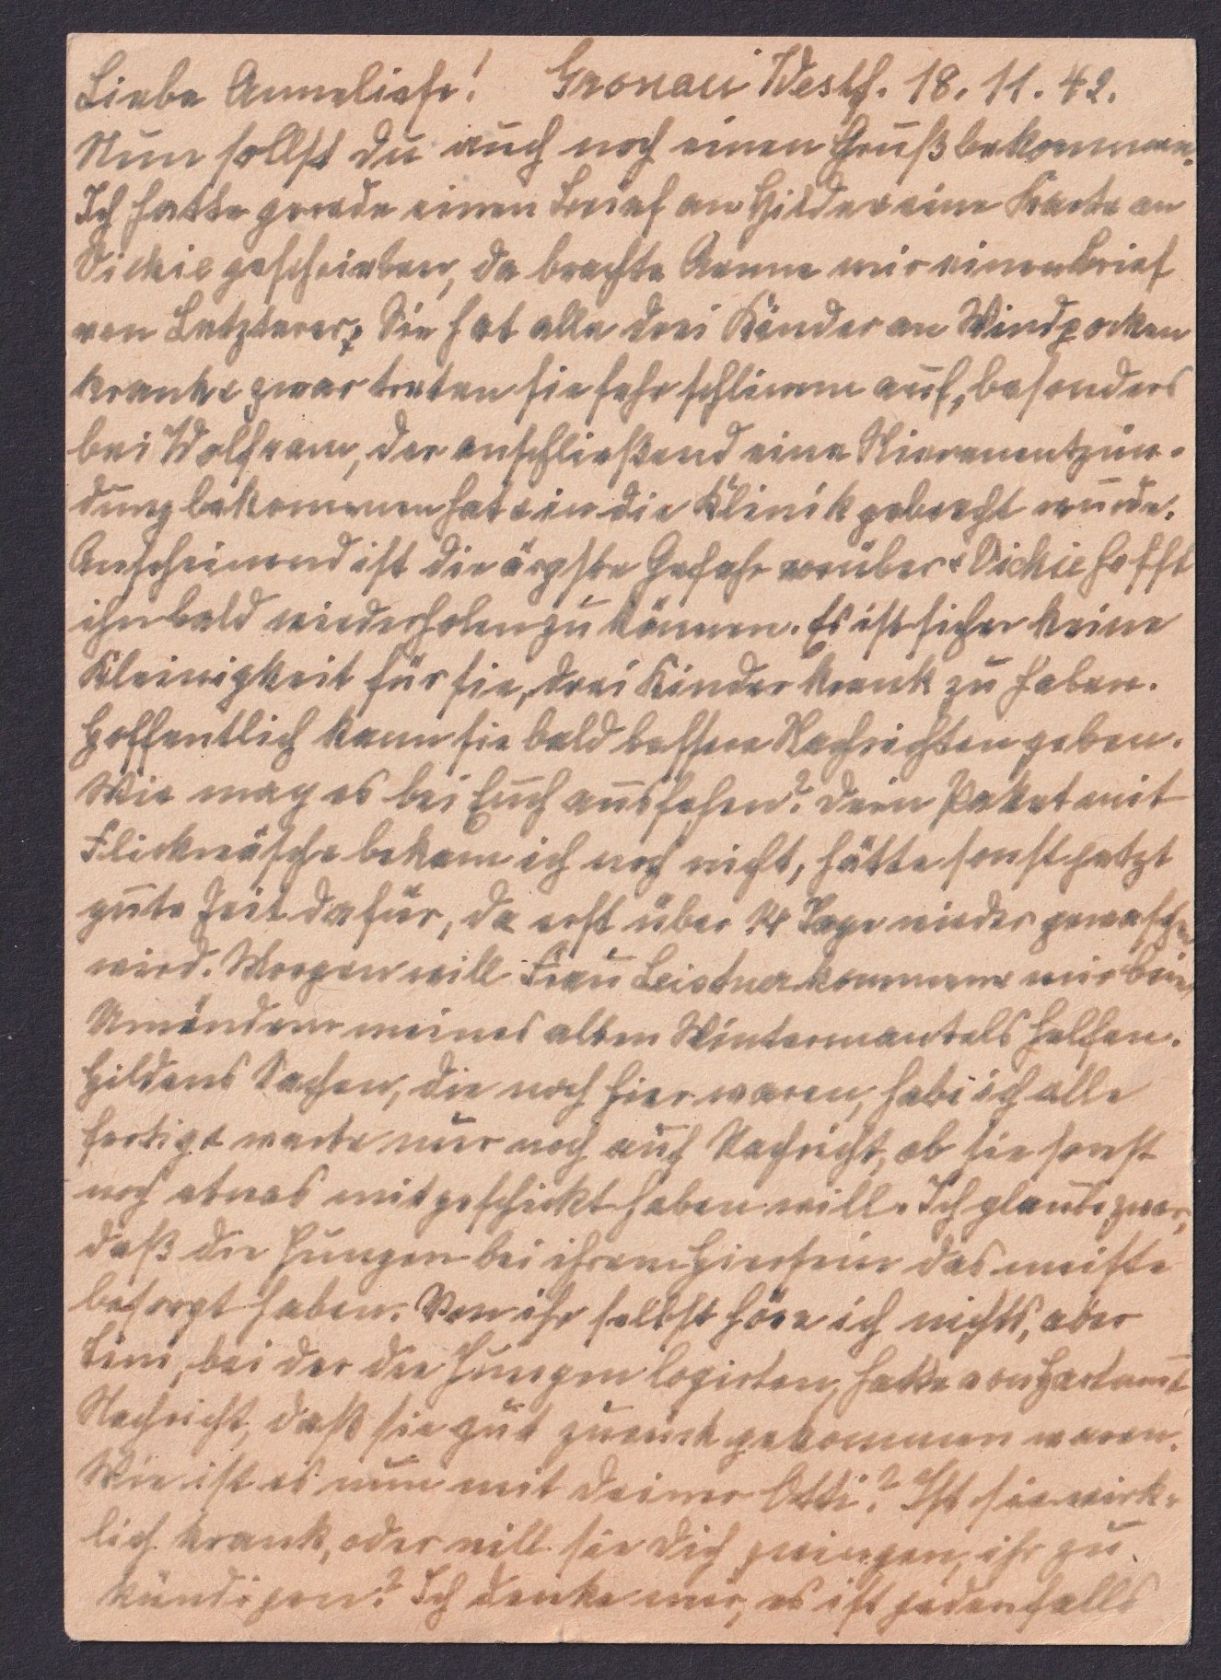 Liebe Anneliese! Gronau Westf. 18.11.42.
Nun sollst du auch noch einen Gruß bekommen.
Ich hatte gerade einen Brief an Hilde u. eine Karte an
Vickie geschrieben, da brachte Aenne mir einen Brief
von Letzterer. Sie hat alle drei Kinder an Windpocken
krank u. zwar treten sie sehr schlimm auf, besonders
bei Wolfram, der anschließend eine Nierenentzün-
dung bekommen hat u. in die Klinik gebracht wurde.
Anscheinend ist die ärgste Gefahr vorüber u. Vickie hofft
ihn bald wiederholen zu können. Es ist sicher keine
Kleinigkeit für sie, drei Kinder krank zu haben.
Hoffentlich kann sie bald bessere Nachrichten geben.
Wie mag es bei Euch aussehen? Dein Paket mit
Flickwäsche bekam ich noch nicht, hätte sonst jetzt
gute Zeit dafür, da erst über 14 Tage wieder gewaschen
wird. Morgen will Frau Leistner kommen u. mir beim
Umändern meines alten Wintermantels helfen.
Hildens Sachen, die noch hier waren, habe ich alle
fertig u. warte nur noch auf Nachricht, ob sie sonst
noch etwas mitgeschickt haben will. Ich glaube zwar,
daß die Jungen bei ihrem Hiersein das meiste
besorgt haben. Von ihr selbst höre ich nichts, aber
Leni, bei der die Jungen logierten, hatte von Hartmut
Nachricht, daß sie gut zurück gekommen waren.
Wie ist es nun mit deiner Otti? Ist sie wirk-
lich krank, oder will sie dich zwingen, ihr zu
kündigen? Ich denke mir, es ist jedenfalls